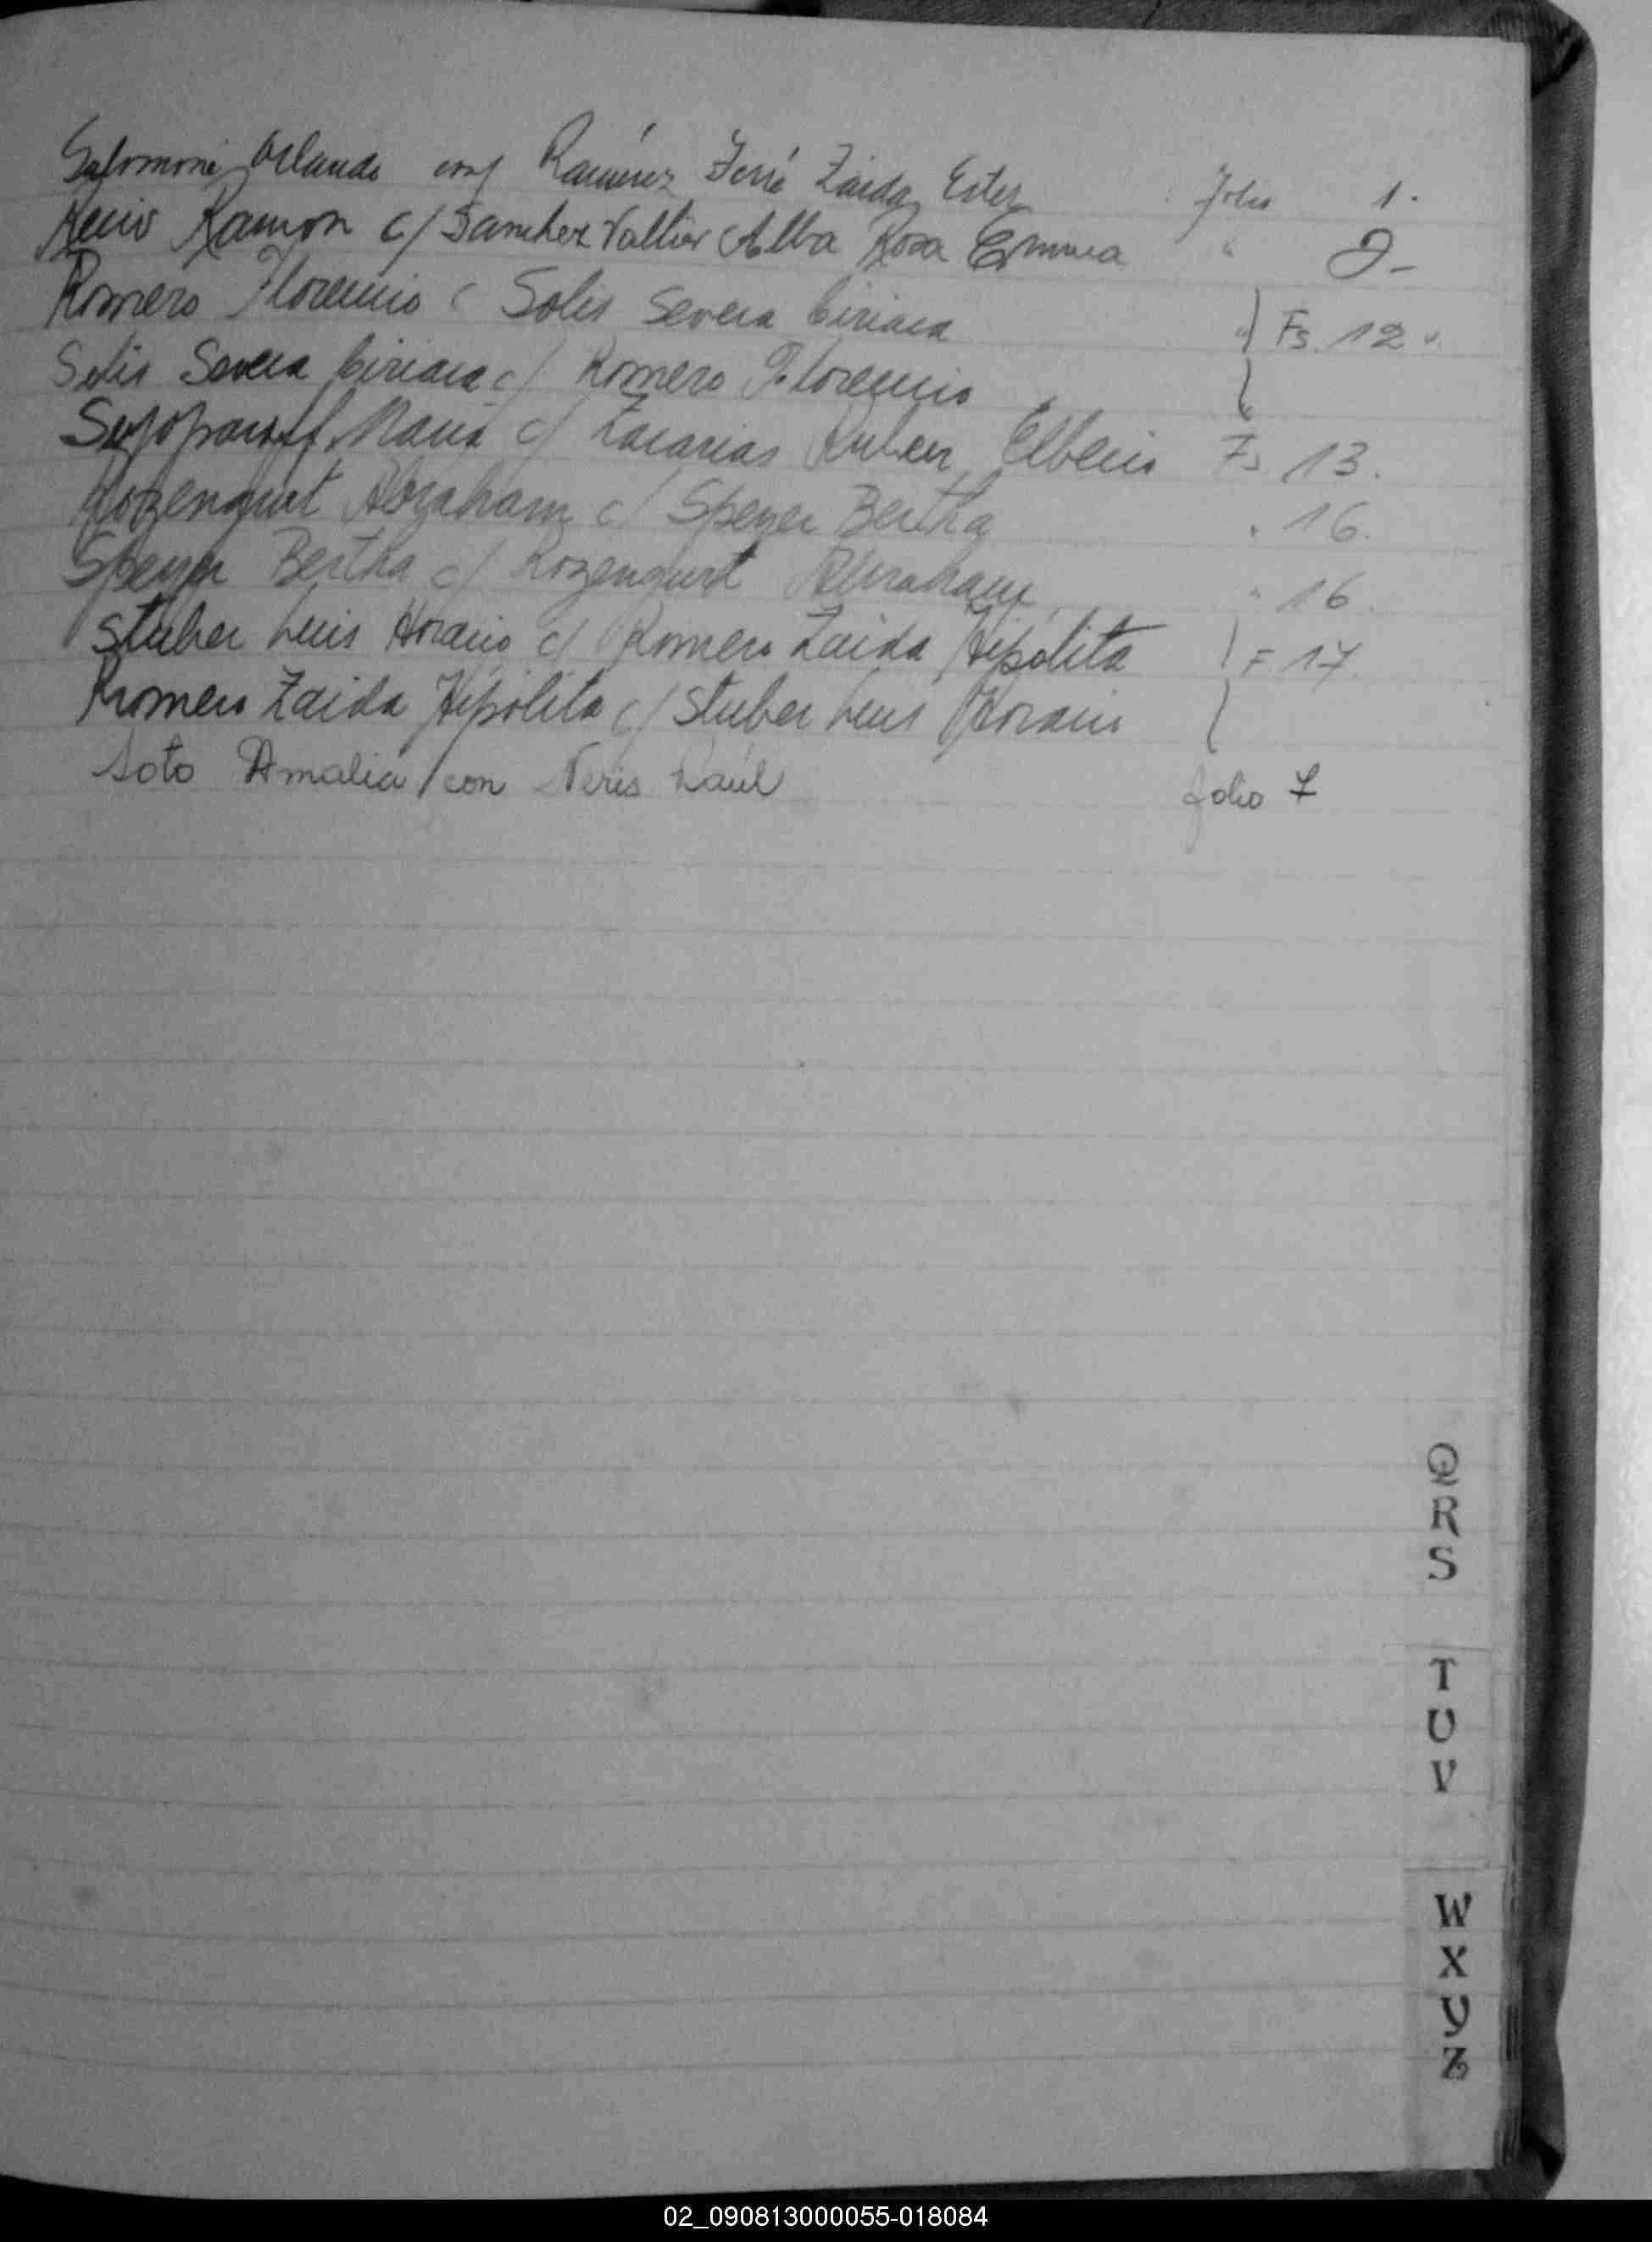 Salomoni Orlando con Ramírez Ferré Zaida Ester folio 1.
Recio Ramon c/ Sanchez Vallier Alba Rosa Emma " 2-
Romero Florencio c Solis Severa Ciriaca Fs. 12 v.
Solis Severa Ciriaca c/ Romero Florencio
Maria c/ Zacarias Ruben Elbecio Fs 13.
Rozengurt Abraham c/ Speyer Bertha " 16.
Speyer Bertha c/ Rozengurt Abraham " 16.
Stuber Luis Horacio c/ Romero Zaida Hipólita F 17.
Romero Zaida Hipólita c/ Stuber Luis Horacio
Soto Amalia con Neris Raúl folio 7
Q
R
S
T
U
V
W
X
Y
Z
02_090813000055-018084